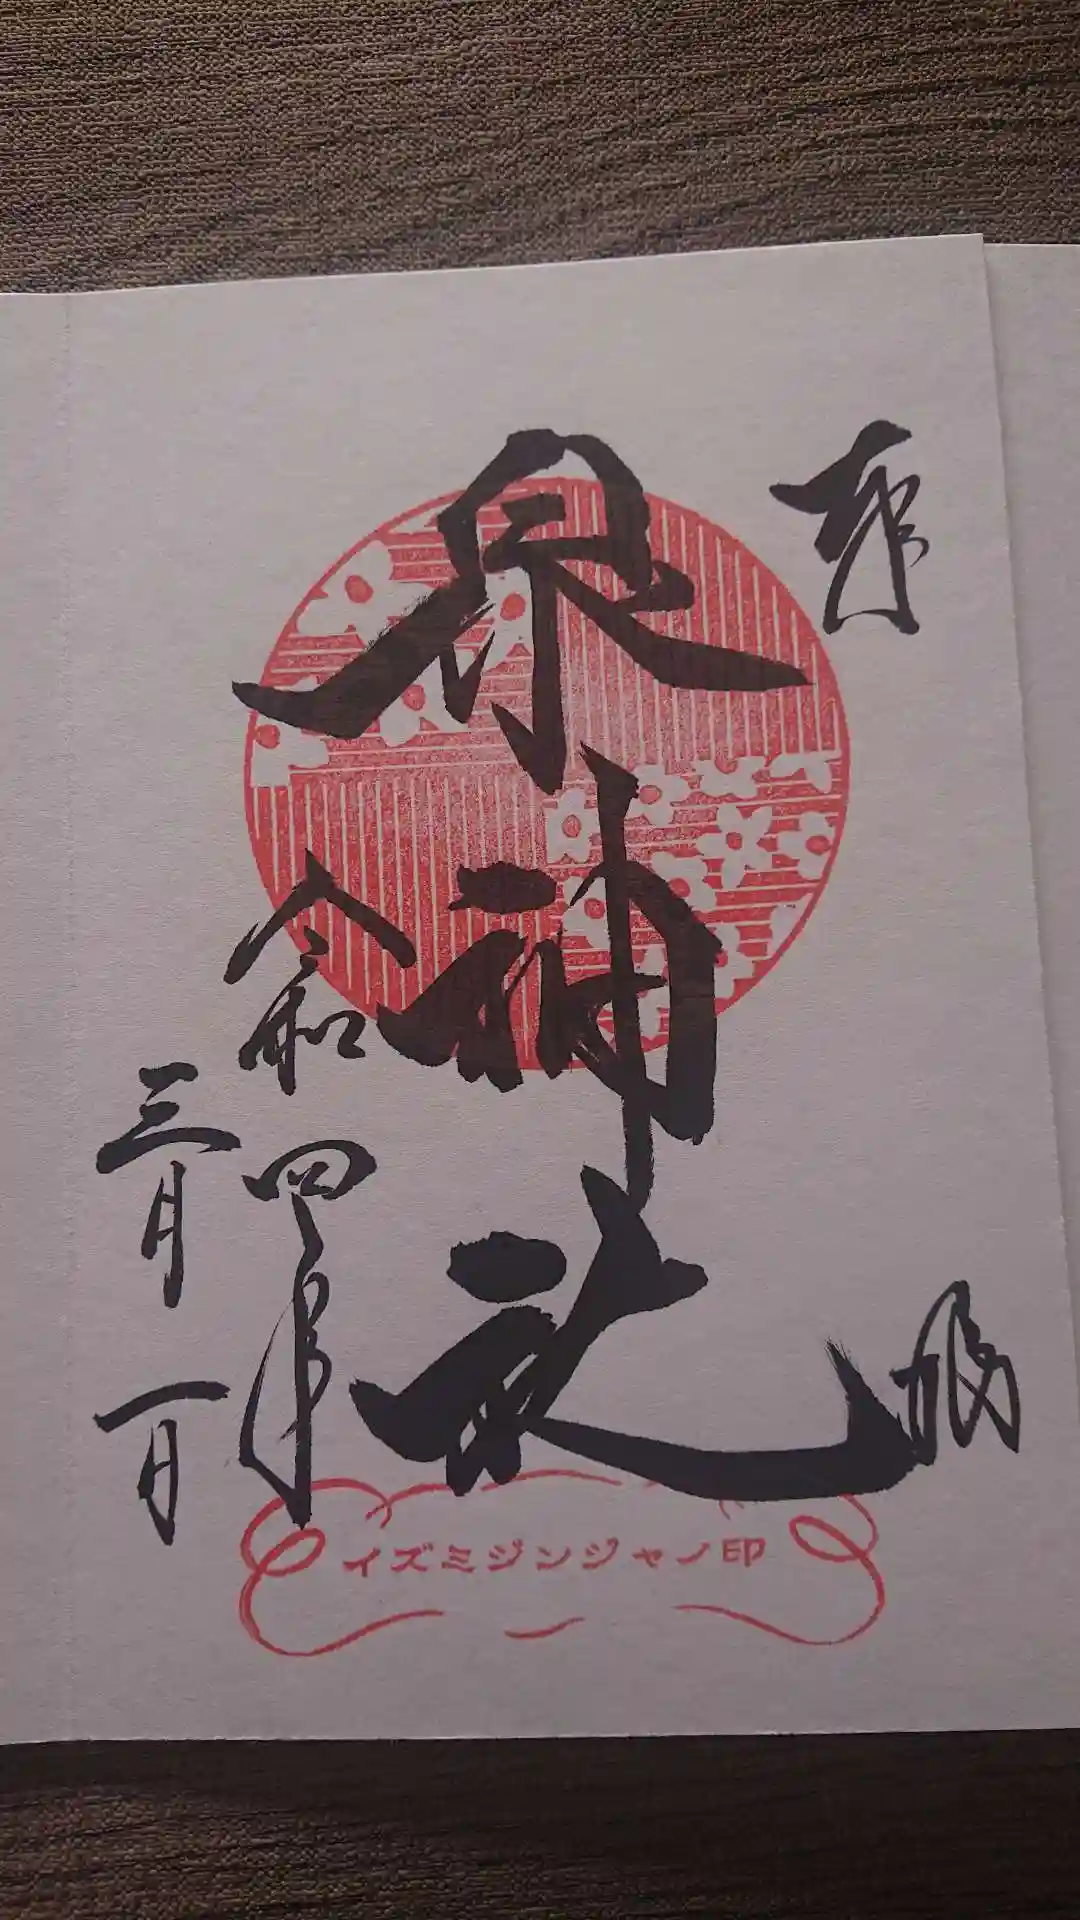 奉
拝
泉神社
令和四年
三月一日
イズミジンジャノ印